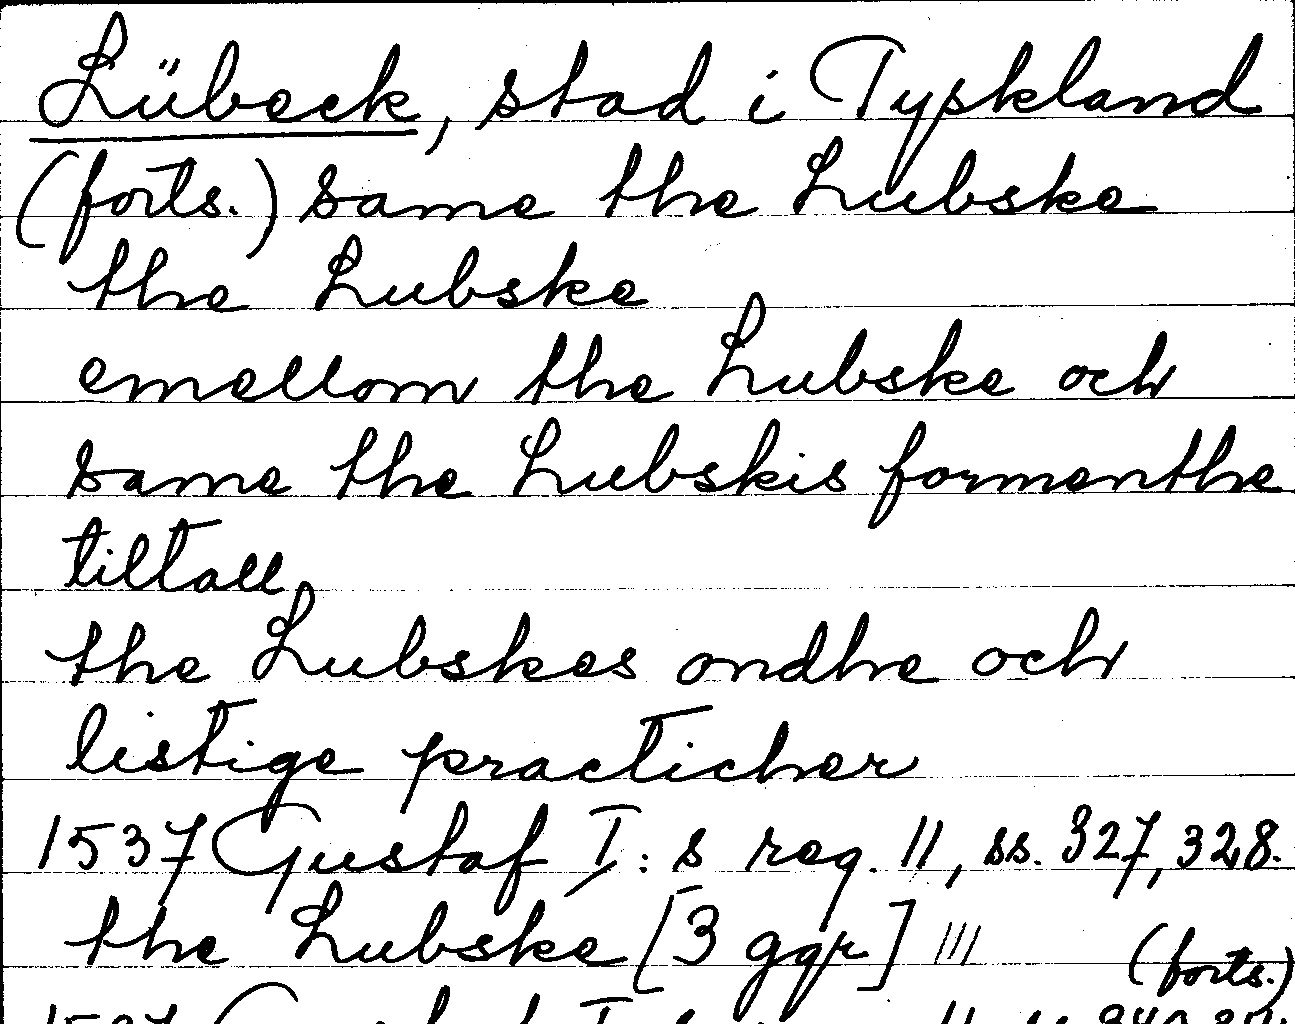 Lübeck, stad i Tyskland
(forts.) same the Lubske
the Lubske
emellom the Lubske och
same the Lubskis formenthe
tiltall
the Lubskes ondhe och
listige practicher
1537 Gustaf I:s reg. 11, ss. 327, 328.
the Lubske [3 ggr] ///
(forts.)
1537 Gustaf I:s